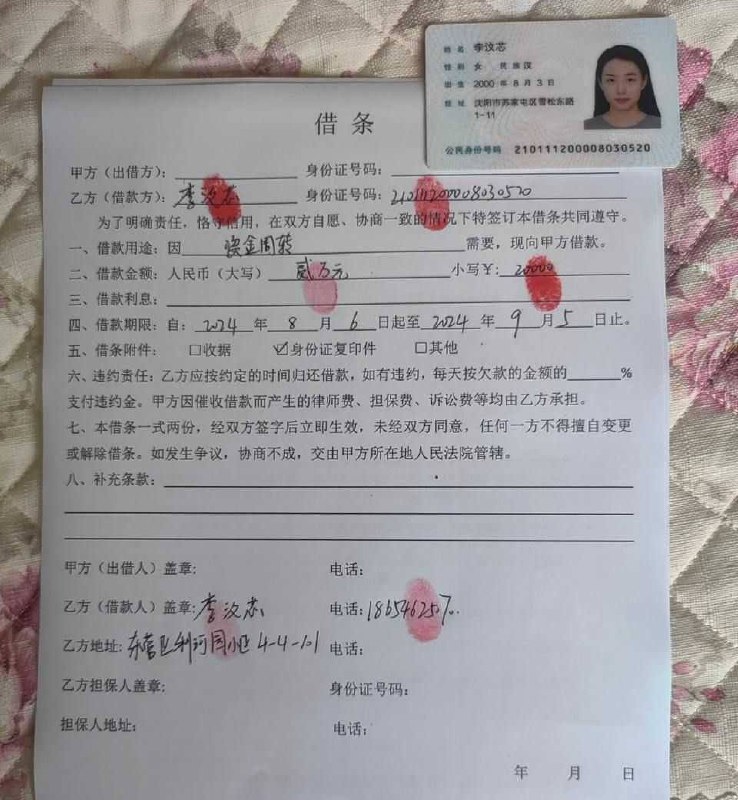 姓名 李汶芯
性别 女 民族汉
出生 2000 年 8 月 3 日
住址 沈阳市苏家屯区雪松东路
1-11
公民身份号码 210111200008030520
借条
甲方（出借方）： 身份证号码：
乙方（借款方）：李汶芯 身份证号码：210111200008030520
为了明确责任，恪守信用，在双方自愿、协商一致的情况下特签订本借条共同遵守。
一、借款用途：因 资金周转 需要，现向甲方借款。
二、借款金额：人民币（大写） 贰万元 小写￥：20000
三、借款利息：
四、借款期限：自：2024 年 8 月 6 日起至 2024 年 9 月 5 日止。
五、借条附件： □收据 ☑身份证复印件 □其他
六、违约责任：乙方应按约定的时间归还借款，如有违约，每天按欠款的金额的______%
支付违约金。甲方因催收借款而产生的律师费、担保费、诉讼费等均由乙方承担。
七、本借条一式两份，经双方签字后立即生效，未经双方同意，任何一方不得擅自变更
或解除借条。如发生争议，协商不成，交由甲方所在地人民法院管辖。
八、补充条款：
甲方（出借人）盖章： 电话：
乙方（借款人）盖章：李汶芯 电话：
乙方地址： 4-4-1-1 电话：
乙方担保人盖章： 身份证号码：
担保人地址： 电话：
年 月 日